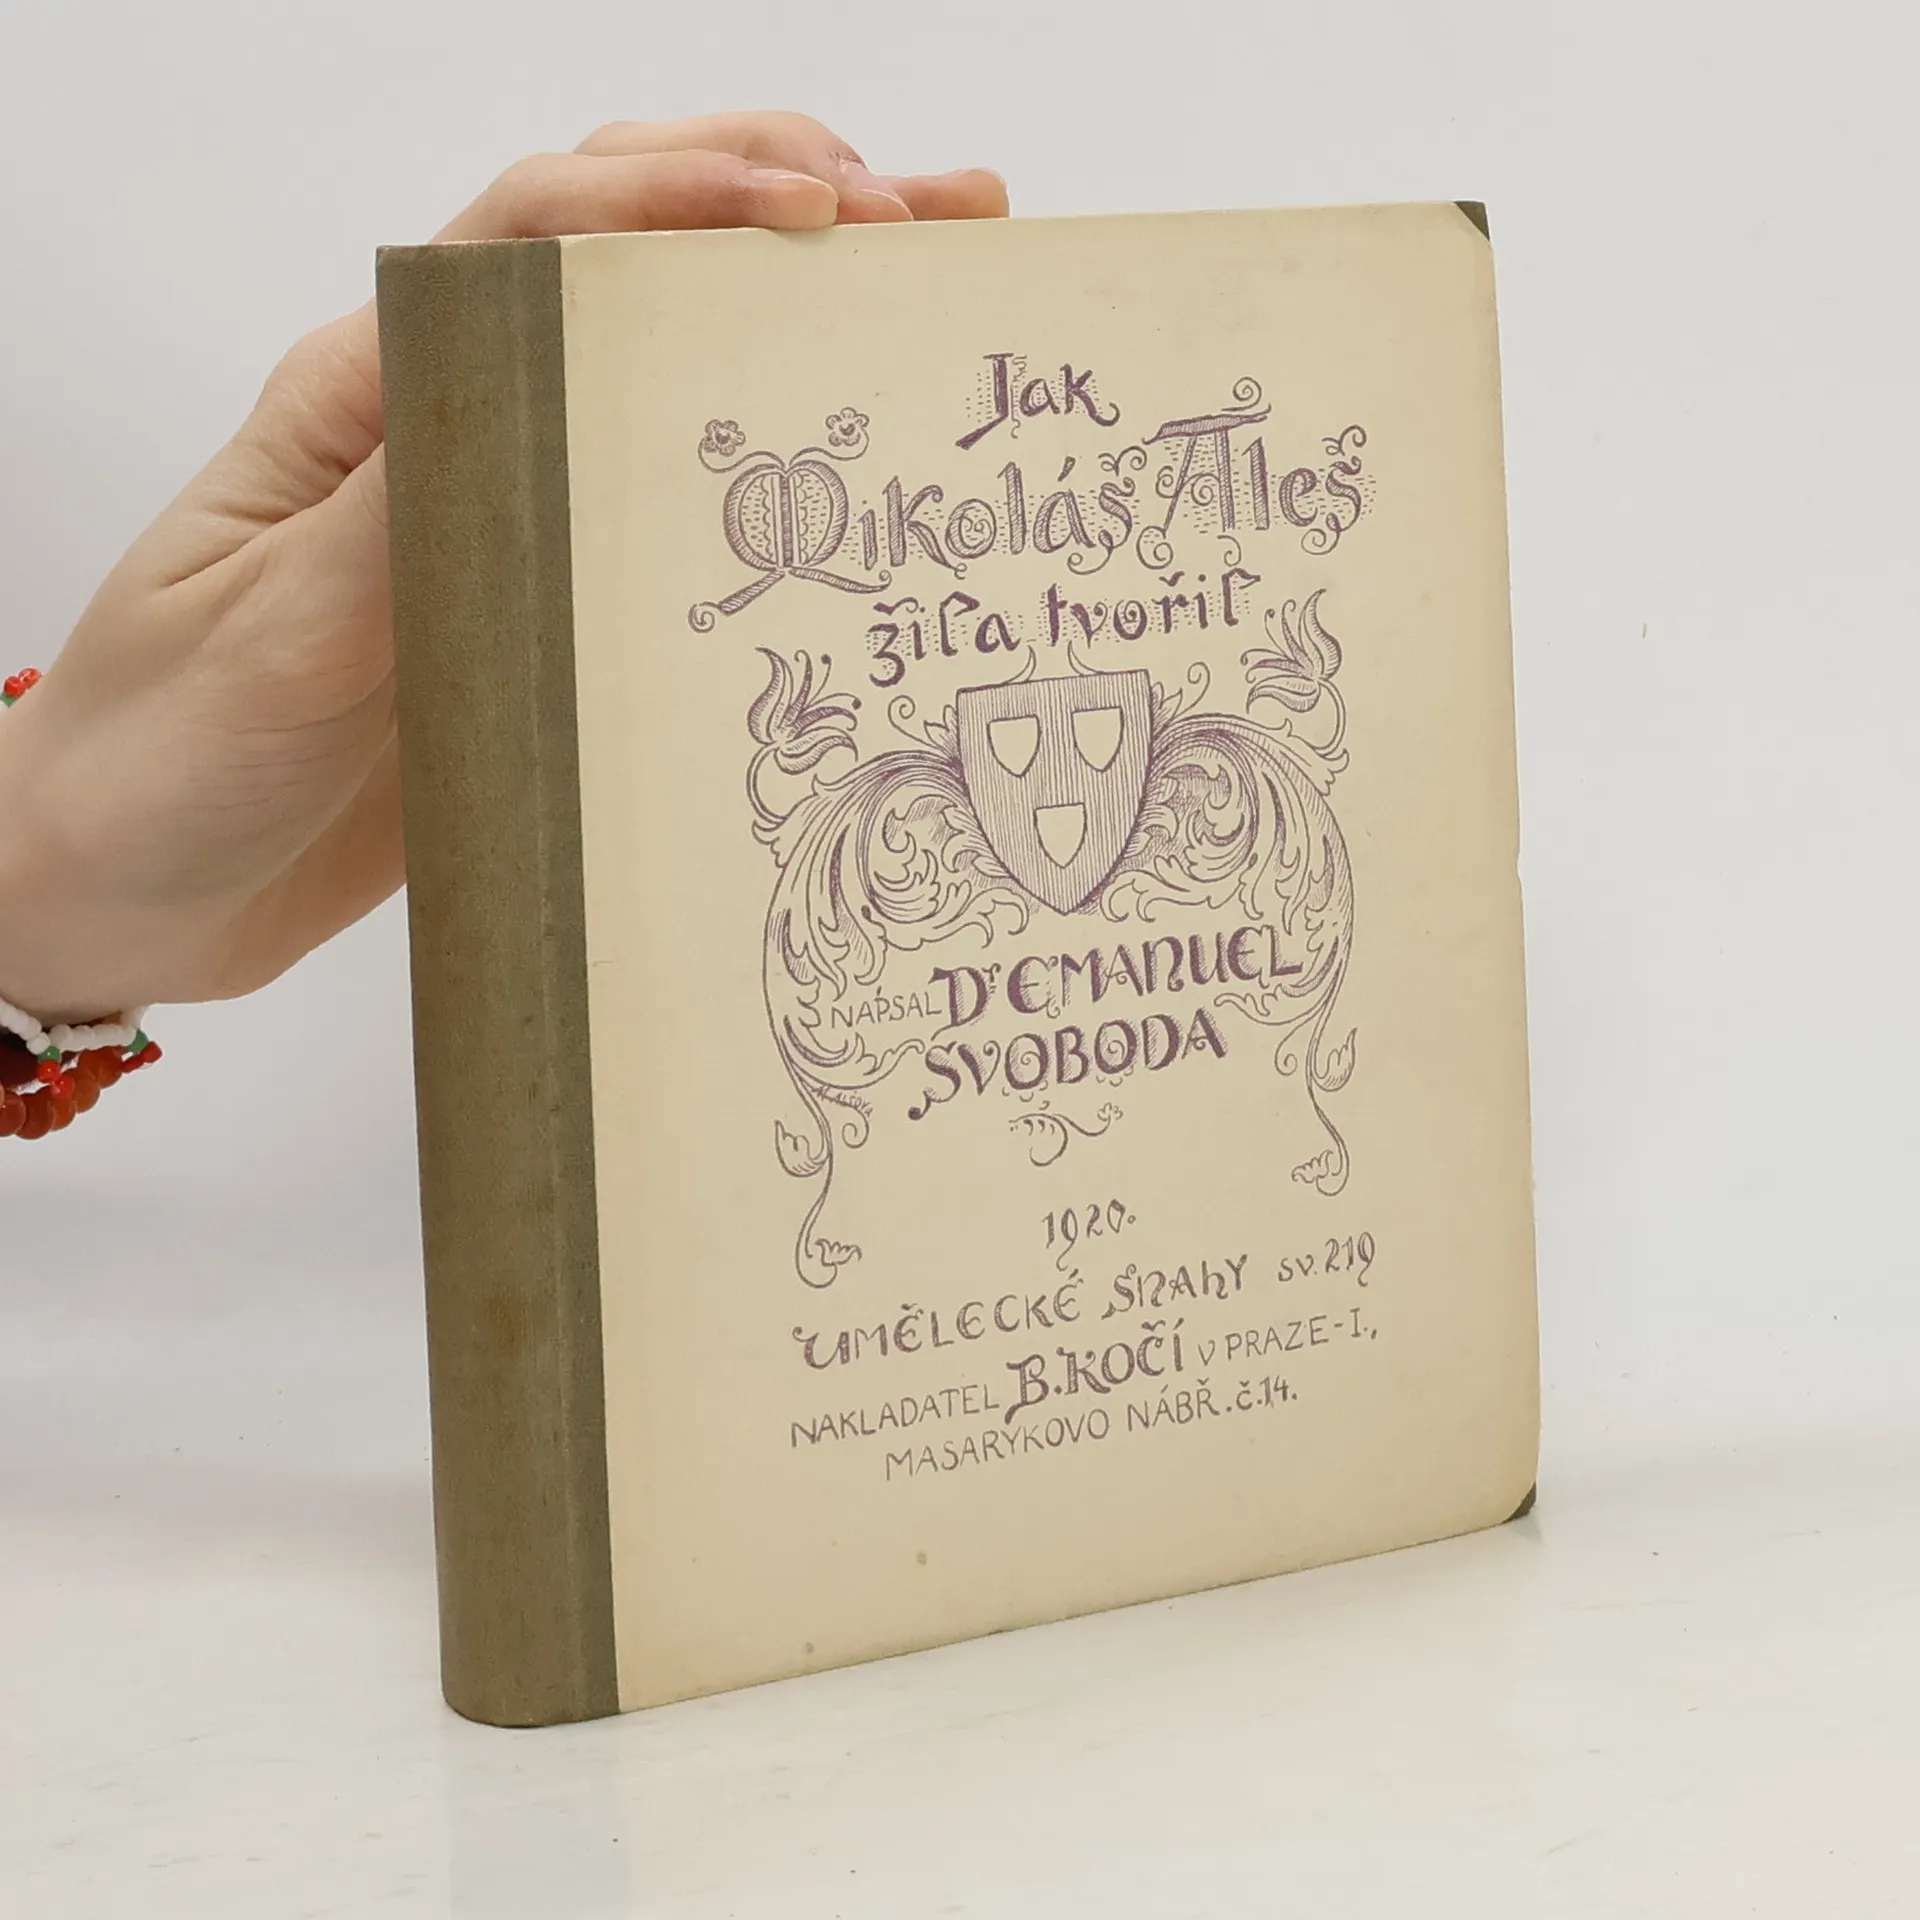 Jak
Mikoláš Aleš
žil a tvořil
NAPSAL Dr EMANUEL
SVOBODA
M. ALŠOVÁ
1920.
UMĚLECKÉ SNAHY SV. 219
NAKLADATEL B. KOČÍ V PRAZE-I.,
MASARYKOVO NÁBŘ. č. 14.